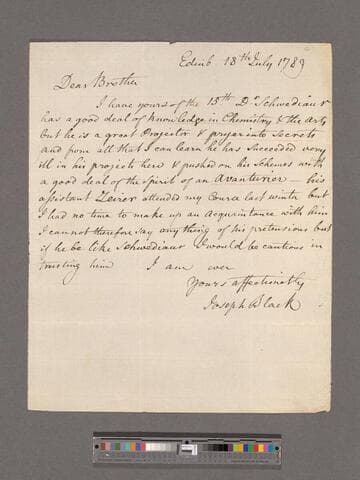 Edinb. 18th July 1789
Dear Brother
I have yours of the 15th Dr Schwediaur
has a good deal of knowledge in Chemistry & the Arts
but he is a great Projector & pryer into Secrets
and from all that I can learn he has succeeded very
ill in his projects here & pushed on his Schemes with
a good deal of the Spirit of an Avanturier — his
assistant Zeirer attended my Course last winter but
I had no time to make up an Acquaintance with him
I cannot therefore say any thing of his pretensions but
if he be like Schwediaur I would be cautious in
trusting him I am ever
Yours affectionately
Joseph Black